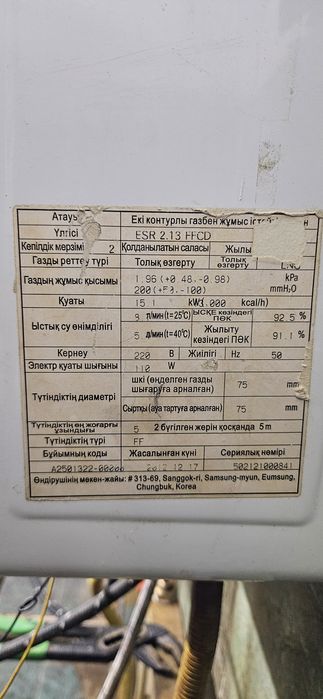 Атауы Екі контурлы газбен жұмыс
Үлгісі ESR 2.13 FFCD
Кепілдік мерзімі 2 Қолданылатын саласы Жылы
Газды реттеу түрі Толық өзгерту Толық өзгерту LNG
Газдың жұмыс қысымы 1.96 (+0.48.-0.98) kPa
200 (+50.-100) mmH₂O
Қуаты 15.1 kW 3.000 kcal/h)
Ыстық су өнімділігі 8 л/мин(t=25℃) ЫСҚЕ кезіндегі ПӘК 92.5 %
5 л/мин(t=40℃) Жылыту кезіндегі ПӘК 91.1 %
Кернеу 220 В Жиілігі Hz 50
Электр қуаты шығыны 110 W
Түтіндіктің диаметрі Ішкі (өнделген газды шығаруға арналған) 75 mm
Сыртқы (ауа тартуға арналған) 75 mm
Түтіндіктің ең жоғарғы ұзындығы 5 2 бүгілген жерін қосқанда 5 m
Түтіндіктің түрі FF
Бұйымның коды Жасалынған күні Сериялық нөмірі
A2501322-00066 2012.12.17 502121000841
Өндірушінің мекен-жайы: # 313-69, Sanggok-ri, Samsung-myun, Eumsung,
Chungbuk, Korea